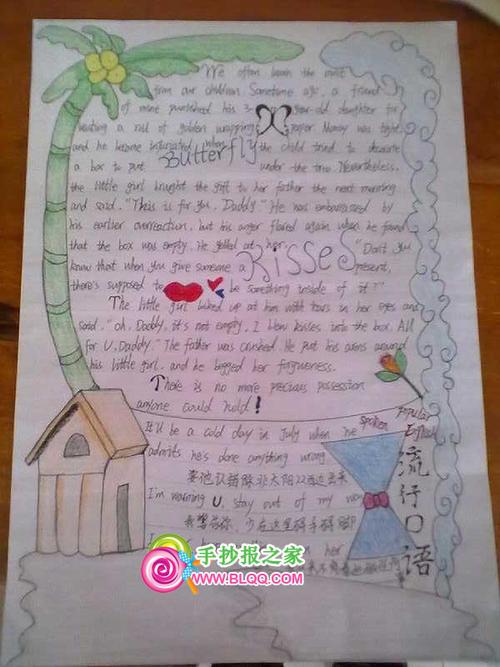 We often learn the most
from our children. Sometime ago, a friend
of mine punished his 3-year-old daughter for
wasting a roll of golden wrapping paper. Money was tight,
and he became infuriated when the child tried to decorate
a box to put under the tree. Nevertheless,
Butterfly
the little girl brought the gift to her father the next morning
and said, "This is for you, Daddy." He was embarrassed by
his earlier overreaction, but his anger flared again when he found
that the box was empty. He yelled at her, "Don't you
Kisses
know that when you give someone a present,
there's supposed to be something inside of it?"
The little girl looked up at him with tears in her eyes and
said, "oh, Daddy, it's not empty, I blow kisses into the box. All
for U, Daddy." The father was crushed. He put his arms around
his little girl, and he begged her forgiveness.
There is no more precious possession
anyone could hold!
Popular
Spoken
English
流行口语
It'll be a cold day in July when he
admits he's done anything wrong
要他认错除非太阳从西边出来
I'm warning U, stay out of my way
我警告你，少在这里碍手碍脚
her
手抄报之家
WWW.BLQQ.COM